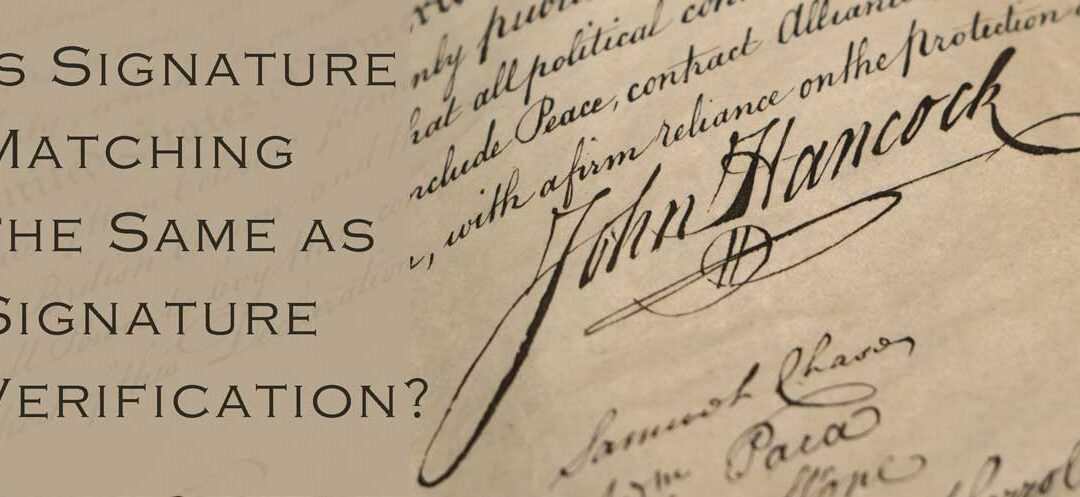 s Signature
Matching
the Same as
Signature
Verification?
nly pub
hat all political con
nclude Peace, contract Alliance
, with a firm reliance on the protection
John Hancock
Samuel Chase
Wm Paca